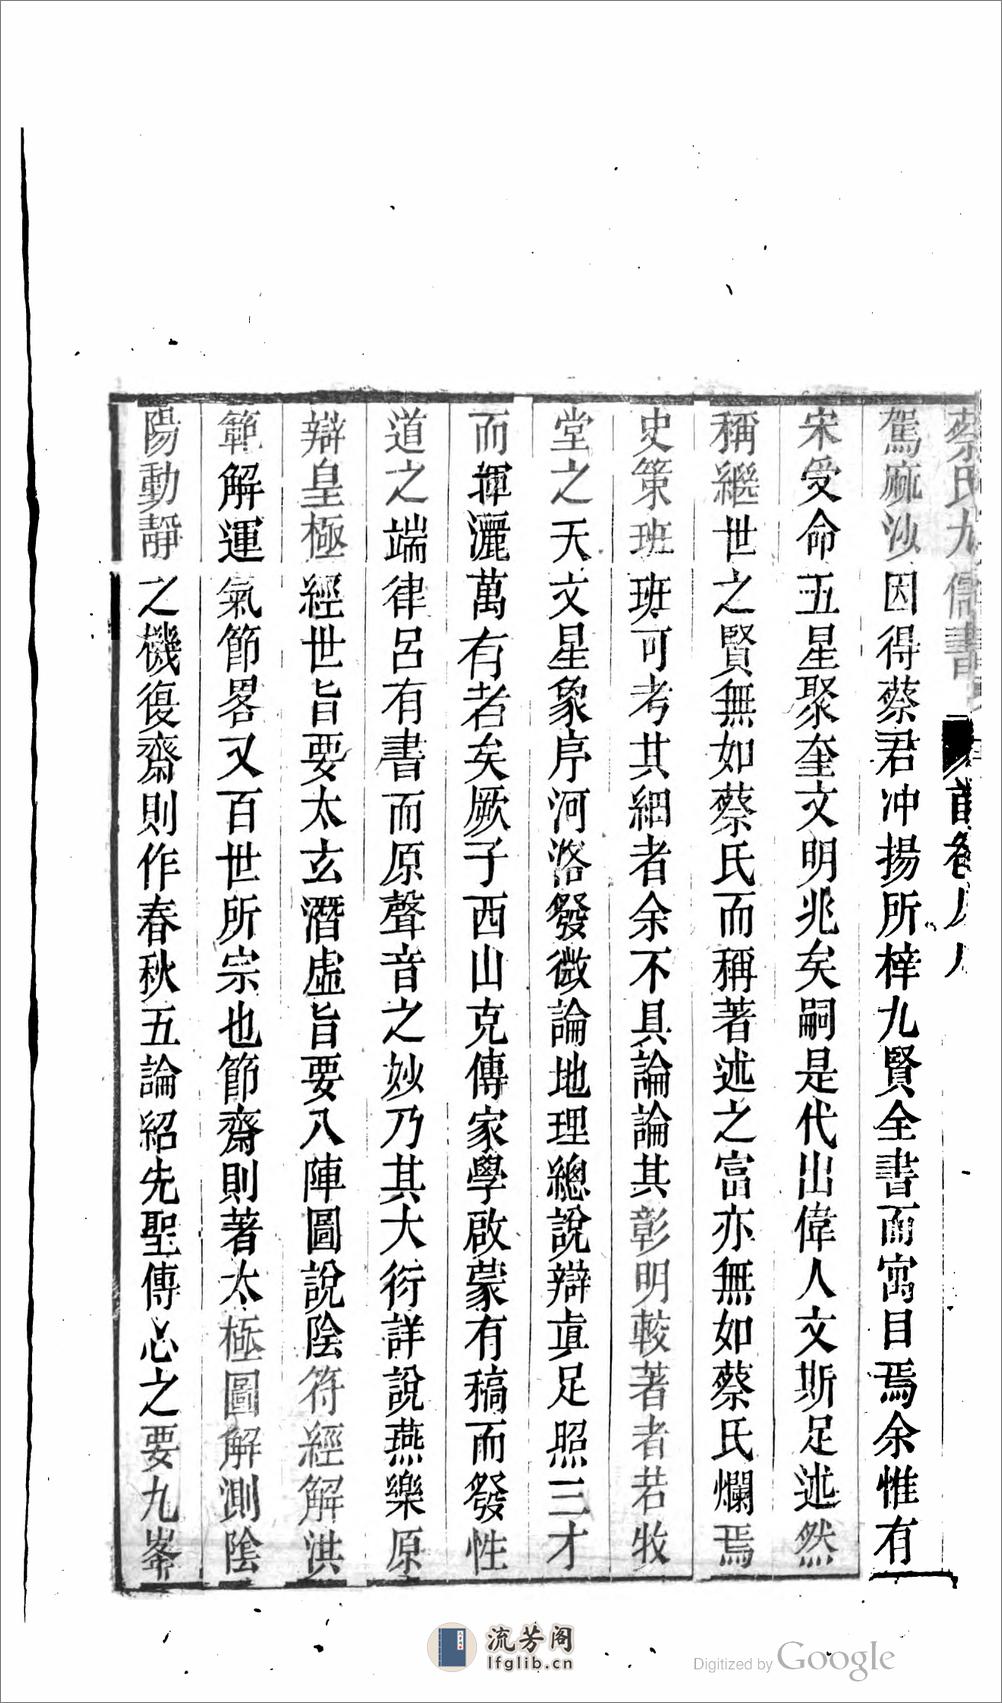 蔡氏九儒書
首卷
駕麻沙因得蔡君冲揚所梓九賢全書而寓目焉余惟有
宋受命五星聚奎文明兆矣嗣是代出偉人文斯足述然
稱繼世之賢無如蔡氏而稱著述之富亦無如蔡氏爛焉
史策班班可考其細者余不具論論其彰明較著者若牧
堂之天文星象序河洛發微論地理總說辯眞足照三才
而揮灑萬有者矣厥子西山克傳家學啟蒙有稿而發性
道之端律呂有書而原聲音之妙乃其大衍詳說燕樂原
辯皇極經世旨要太玄潛虛旨要八陣圖說陰符經解洪
範解運氣節畧又百世所宗也節齋則著太極圖解測陰
陽動靜之機復齋則作春秋五論紹先聖傳心之要九峯
流芳阁
lfglib.cn
Digitized by Google